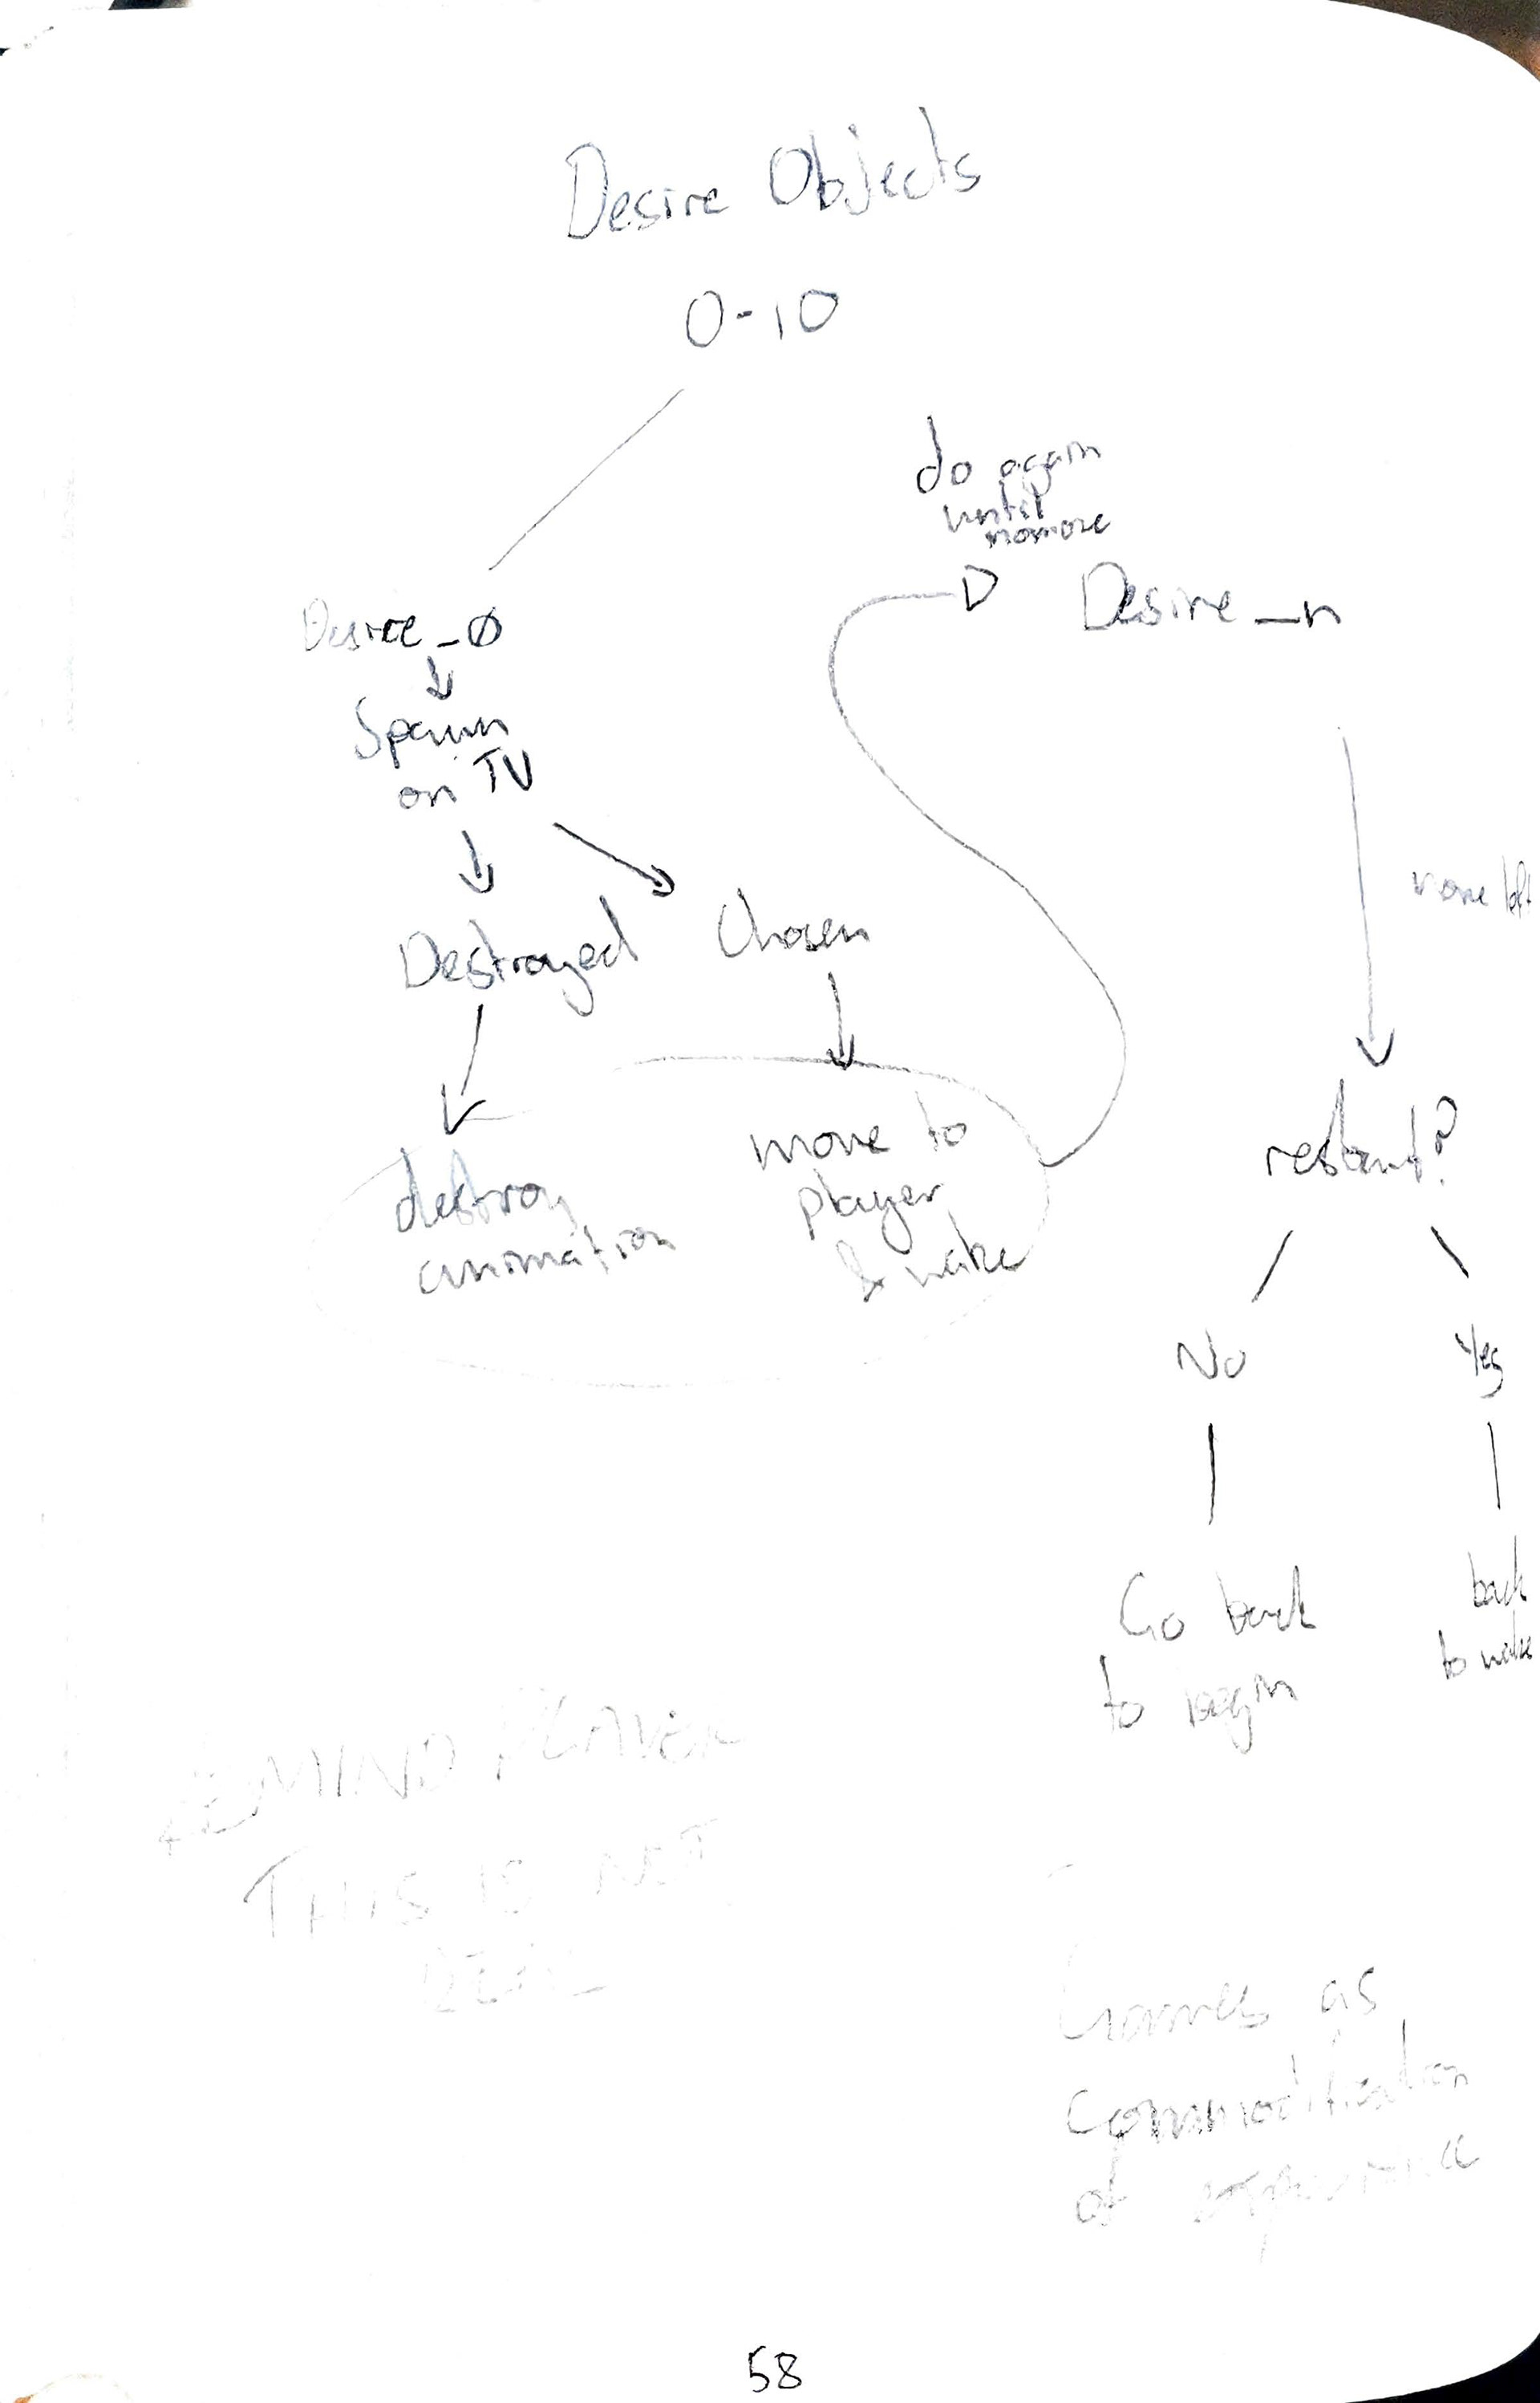 Desire Objects
0-10
do again
until
nomore
Desire_0
Desire_n
Spawn
on TV
none left
Destroyed
Chosen
restart?
move to
player
& wake
destroy
animation
No
Yes
Go back
to begin
back
to wake
REMIND PLAYER
THIS IS NOT
REAL
Games as
commodification
of experience
58